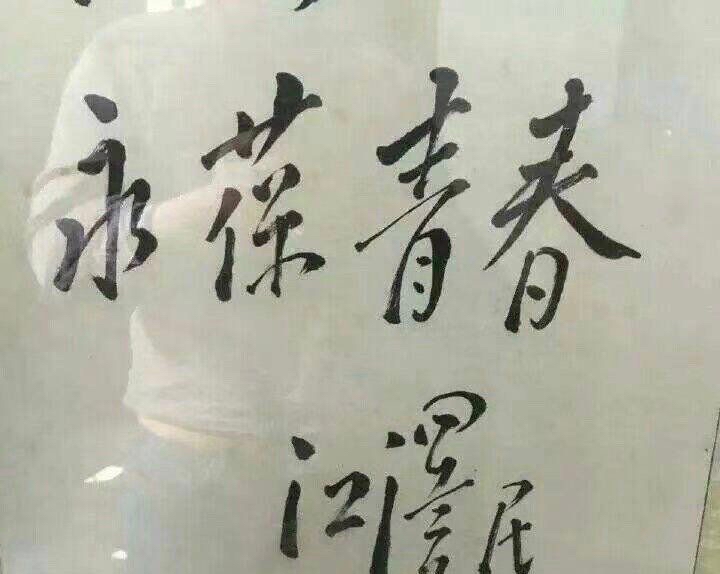 永葆青春
江澤民